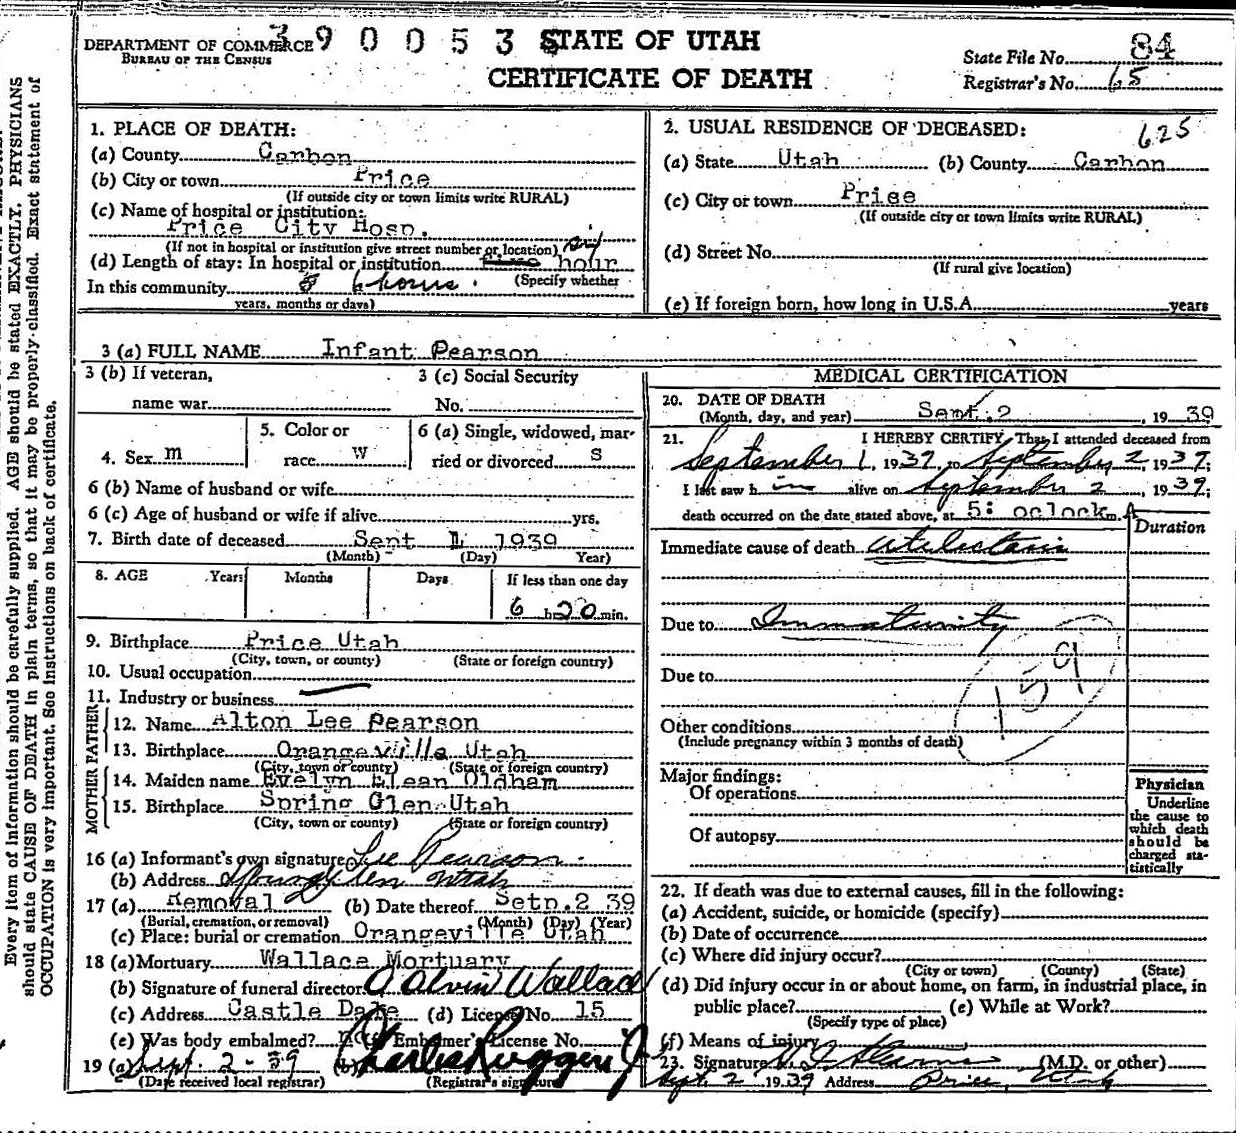 3 9 0 0 5 3
DEPARTMENT OF COMMERCE
BUREAU OF THE CENSUS
STATE OF UTAH
CERTIFICATE OF DEATH
State File No. 84
Registrar's No. 65
Every item of information should be carefully supplied. AGE should be stated EXACTLY. PHYSICIANS
should state CAUSE OF DEATH in plain terms, so that it may be properly classified. Exact statement of
OCCUPATION is very important. See instructions on back of certificate.
1. PLACE OF DEATH:
(a) County Carbon
(b) City or town Price
(If outside city or town limits write RURAL)
(c) Name of hospital or institution:
Price City Hosp.
(If not in hospital or institution give street number or location)
(d) Length of stay: In hospital or institution six hour
In this community 6 hours. (Specify whether
years, months or days)
2. USUAL RESIDENCE OF DECEASED: 625
(a) State Utah (b) County Carbon
(c) City or town Price
(If outside city or town limits write RURAL)
(d) Street No.
(If rural give location)
(e) If foreign born, how long in U.S.A. years
3 (a) FULL NAME Infant Pearson
3 (b) If veteran, 3 (c) Social Security
name war No.
4. Sex m 5. Color or race W 6 (a) Single, widowed, married or divorced S
6 (b) Name of husband or wife
6 (c) Age of husband or wife if alive yrs.
7. Birth date of deceased Sept 1 1939
(Month) (Day) Year)
8. AGE Years Months Days If less than one day
6 h 20 min.
9. Birthplace Price Utah
(City, town, or county) (State or foreign country)
10. Usual occupation
11. Industry or business
FATHER
12. Name Alton Lee Pearson
13. Birthplace Orangeville Utah
(City, town or county) (State or foreign country)
MOTHER
14. Maiden name Evelyn Elean Oldham
15. Birthplace Spring Glen Utah
(City, town or county) (State or foreign country)
16 (a) Informant's own signature Lee Pearson
(b) Address Spring Glen Utah
17 (a) Removal (b) Date thereof Setp.2 39
(Burial, cremation, or removal) (Month) (Day) (Year)
(c) Place: burial or cremation Orangeville Utah
18 (a) Mortuary Wallace Mortuary
(b) Signature of funeral director A Alvin Wallace
(c) Address Castle Dale (d) License No. 15
(e) Was body embalmed? (f) Embalmer's License No.
19 (a) Sept. 2-39 (b) Charles Ruggeri Jr
(Date received local registrar) (Registrar's signature)
MEDICAL CERTIFICATION
20. DATE OF DEATH
(Month, day, and year) Sept. 2, 1939
21. I HEREBY CERTIFY, That I attended deceased from
September 1, 1939, to September 2, 1939;
I last saw h im alive on September 2, 1939;
death occurred on the date stated above, at 5: oclock m. A
Duration
Immediate cause of death Atelectasis
Due to Immaturity
159
Due to
Other conditions
(Include pregnancy within 3 months of death)
Major findings:
Of operations
Of autopsy
Physician
Underline
the cause to
which death
should be
charged sta-
tistically
22. If death was due to external causes, fill in the following:
(a) Accident, suicide, or homicide (specify)
(b) Date of occurrence
(c) Where did injury occur?
(City or town) (County) (State)
(d) Did injury occur in or about home, on farm, in industrial place, in
public place? (e) While at Work?
(Specify type of place)
(f) Means of injury
23. Signature (M.D. or other)
Sept 2 1939 Address Price, Utah